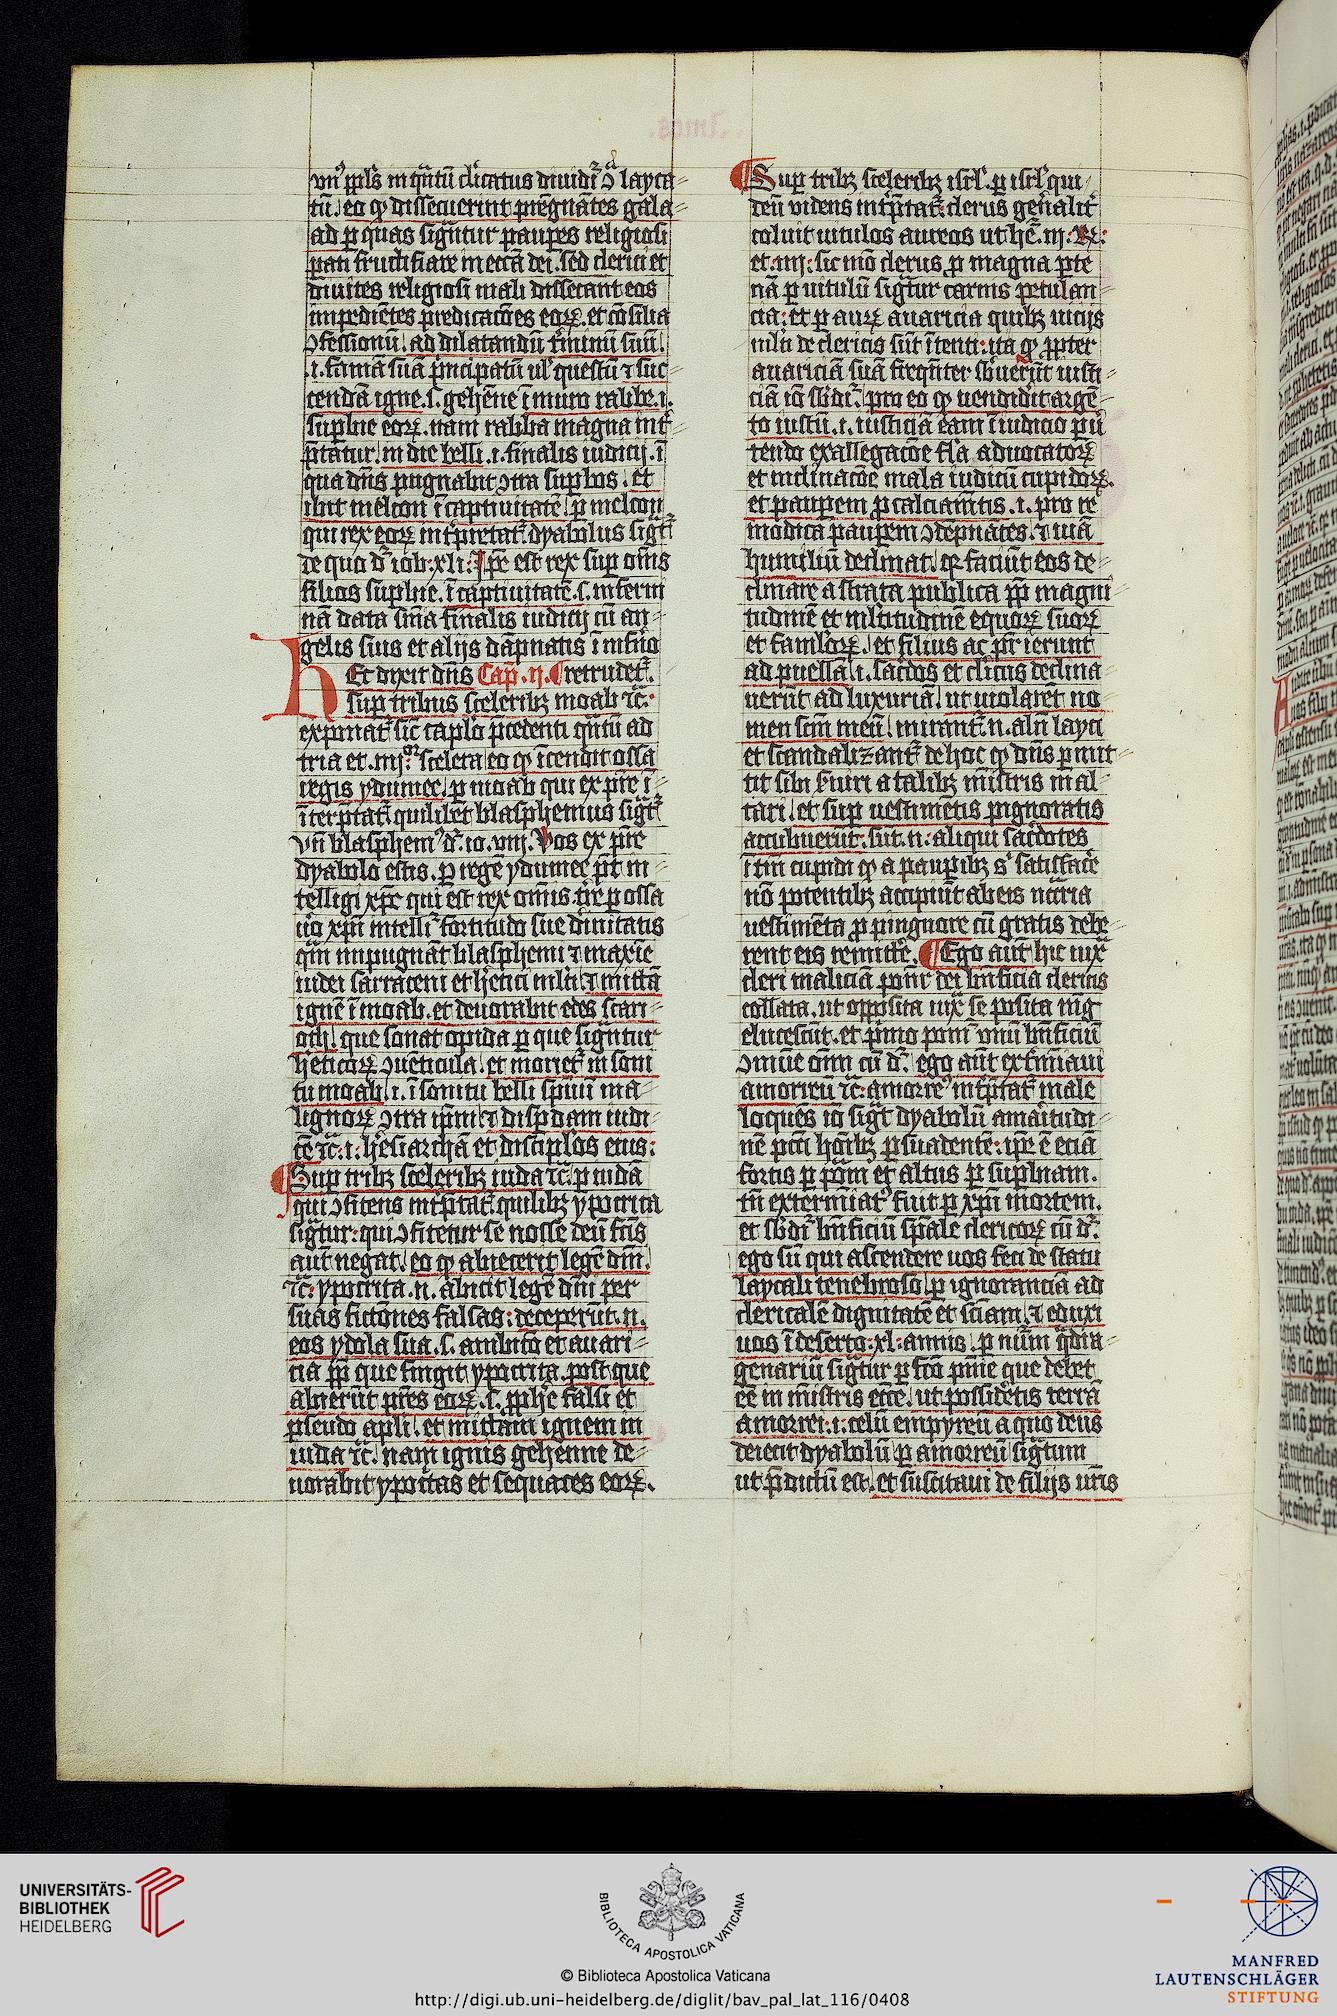 vn᷒ ppl᷒s in q̄ntū cl̓icatus diuidit᷑ ɔ͛ layca⸗
tū. eo ꝙ dissecuerint pregnātes gala⸗
ad ꝑ quas sig̅ntur pauꝑes religiosi
pati fructifiare in ecc̄a dei. sed clerici et
diuites religiosi mali dissecant eos
impediētes predicacōes eoꝝ. et cōsilia
ɔfessionū. ad dilatandū t̓minū suū.
.i. famā suā p̓ncipatū ul᷒ questū ⁊ suc⸗
cendā igne .s. gehēne ī muro rabbe .i.
suꝑbie eoꝝ. nam rabba magna int̓⸗
p̄tatur. in die belli .i. finalis iudicij. ī
qua dn̄s pugnabit ɔtra suꝑbos. et
ibit melcon ī captiuitatē. ꝑ melcon
qui rex eoꝝ int̓pretat᷑ dyabolus sigt᷑
de quo d᷑r iob .xli. Ip̄e est rex suꝑ om̄s
filios suꝑbie. ī captiuitatē .s. inferni
nā data sn̄ia finalis iudicij cū an⸗
gelis suis et alijs dāpnatis ī inf̓no
Et dixit dn̄s Cap̄. ij. ¶ retrudet᷑.
Suꝑ tribus sceleribꝫ moab ⁊c̄.
exponat᷑ sic̄ cap̓lo p̄cedenti q̄ntū ad
tria et .iiijor scelera. eo ꝙ īcendit ossa
regis ydumee. ꝑ moab qui ex pr̄e ī⸗
īterp̄tat᷑ quilibet blasphemus sigt᷑
vn̄ blasphem᷒ d᷑r io. viij. Vos ex pr̄e
dyabolo estis. ꝑ regē ydumee p̄t in⸗
telligi xp̄c qui est rex omnis t̓re ꝑ ossa
u̓o xp̄i intelli᷑ fortitudo sue diuinitatis
q̄m inpugnāt blasphemi ⁊ maxīe
iudei sarraceni et hētici ml̓ti. ⁊ mittā
ignē ī moab. et deuorabit edes scari⸗
oth. que sonat opida ꝑ que sig̅ntur
hēticoꝝ ɔuēticula. et moriet᷑ in soni⸗
tu moab. .i. ī sonitu belli sp̄iuū ma⸗
lignoꝝ ɔtra ip̄m. ⁊ disꝑdam iudi⸗
cē ⁊c̄ .i. hēsiarchā et discipl̓os eius:
¶ Suꝑ tribꝫ sceleribꝫ iuda ⁊c̄. ꝑ iudā
qui ɔfitens int̓p̄tat᷑ quilibꝫ ypocrita
sig̅tur: qui ɔfitetur se nosse deū fc̄is
aut̄ negat. eo ꝙ abiecerit legē dn̄i.
⁊c̄. ypocrita .n. abicit legē dn̄i per
suas fictōnes falsas: deceperūt .n.
eos ydola sua .s. ambitō et auari⸗
cia pp̄ que fingit ypocrita. post que
abierūt pr̄es eoꝝ .s. pphē falsi et
pseudo apl̓i. et mictam ignem in
iuda ⁊c̄. nam ignis gehenne de⸗
uorabit ypocritas et sequaces eoꝝ.
¶ Suꝑ tribꝫ sceleribꝫ isrl᷒. ꝑ isrl᷒ qui
deū videns int̓p̄tat᷑ clerus gen̄alit̓
coluit uitulos aureos ut hē̄. iij. Re:
et .iiij. sic mō clerus ꝑ magna ꝑte
nā ꝑ uitulū sig̅tur carnis petulan⸗
cia. et ꝑ auꝝ auaricia quibꝫ uicijs
ml̓ti de clericis sūt ītenti: ita ꝙ ꝓpter
auariciā suā freq̄nter sbuerūt iusti⸗
ciā iō sbdi᷑. pro eo ꝙ uendidit argē⸗
to iustū .i. iusticiā eam ī iudicio
et inclinacōe mala iudicū cupidoꝝ.
et pauꝑem ꝑ calciam̄tis .i. pro re
modica pauꝑem ɔdēpnātes. ⁊ uiā
humiliū declinat. qr̄ faciūt eos de⸗
clinare a strata publica pp̄ magni⸗
tudinē et ml̓titudinē equoꝝ suoꝝ
et faml̓oꝝ. et filius ac pr̄ ierunt
ad puellā .i. sac̓dos et cl̓icus declina⸗
uerūt ad luxuriā. ut uiolarēt no⸗
men sc̄m meū. mirant᷑ .n. aln̄ layci
et scandalizant᷑ de hoc ꝙ dn̄s ꝑmit⸗
tit sibi s̓uiri a talibꝫ mīstris in al⸗
tari. et suꝑ uestimētis pignoratis
accubuerūt. sūt .n. aliqui sac̓dotes
ītm̄ cupidi ꝙ a pauꝑibꝫ s᷑ satisfac̓e
nō potentibꝫ accipiūt ab eis nc̄cria
uestimēta ꝑ pingnore cū gratis debe⸗
rent eis remitt̓e. ¶ Ego aut̄ hic iux̄
cleri maliciā ponit᷑ dei bn̄ficia clericis
collata. ut opposita iux̄ se posita mg̅
elucescūt. et p̓mo ponit᷑ vnū bn̄ficiū
ɔmūe om̄i cū d᷑r. ego aūt ext̓mīaui
amorreū ⁊c̄: amorre᷒ int̓p̄tat᷑ male
loquēs iō sigt᷑ dyabolū amaritudi⸗
nē pcc̄i hōībꝫ ꝑsuadentē: ip̄e ē eciā
fortis ꝑ po᷒m et altus ꝑ suꝑbiam.
tn̄ extermīat᷒ fuit ꝑ xp̄i mortem.
et sbdi᷑ bn̄ficiū sp̄ale clericoꝝ cū d᷑r.
ego sū qui ascendere uos feci de statu
laycali tenebroso. ꝑ ignoranciā ad
clericalē dignitatē et sc̄iam. ⁊ eduxi
uos ī deserto .xl. annis. ꝑ nūm q̄dra⸗
genariū sig̅tur ꝑfc̄o pn̄ie que debet
eē in mīstris ecc̄e. ut possidetis terrā
amorrei .i. celū empyreū a quo deus
deiecit dyabolū ꝑ amorreū sig̅tum
ut p̄dictū est. et suscitaui de filijs ur̄is
UNIVERSITÄTS-
BIBLIOTHEK
HEIDELBERG
BIBLIOTECA APOSTOLICA VATICANA
© Biblioteca Apostolica Vaticana
http://digi.ub.uni-heidelberg.de/diglit/bav_pal_lat_116/0408
MANFRED
LAUTENSCHLÄGER
STIFTUNG